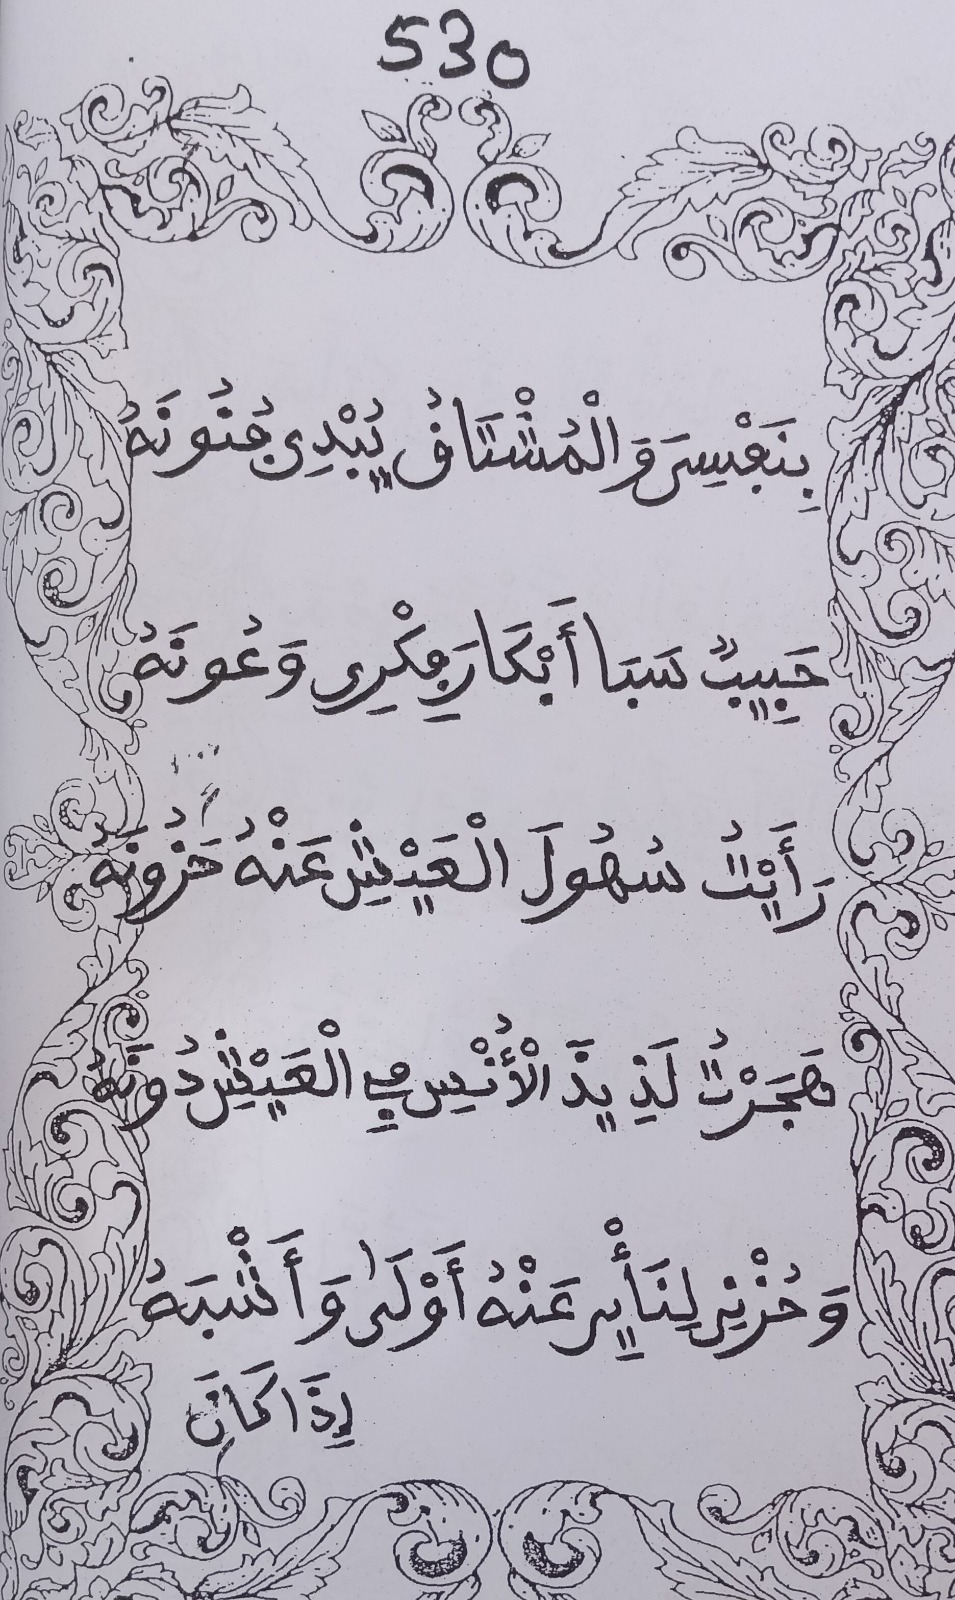 530
بِنَفْسِيَ وَالْمُشْتَاقُ يُبْدِي جُنُونَهُ
حَبِيبٌ سَبَا أَبْكَارَ فِكْرِي وَعُونَهُ
رَأَيْتُ سُهُولَ الْعَيْشِ عَنْهُ حُزُونَهُ
هَجَرْتُ لَذِيذَ الْأُنْسِ فِي الْعَيْشِ دُونَهُ
وَحُزْنِي لِنَأْيِي عَنْهُ أَوْلَى وَأَشْبَهُ
إِذَا كَانَ